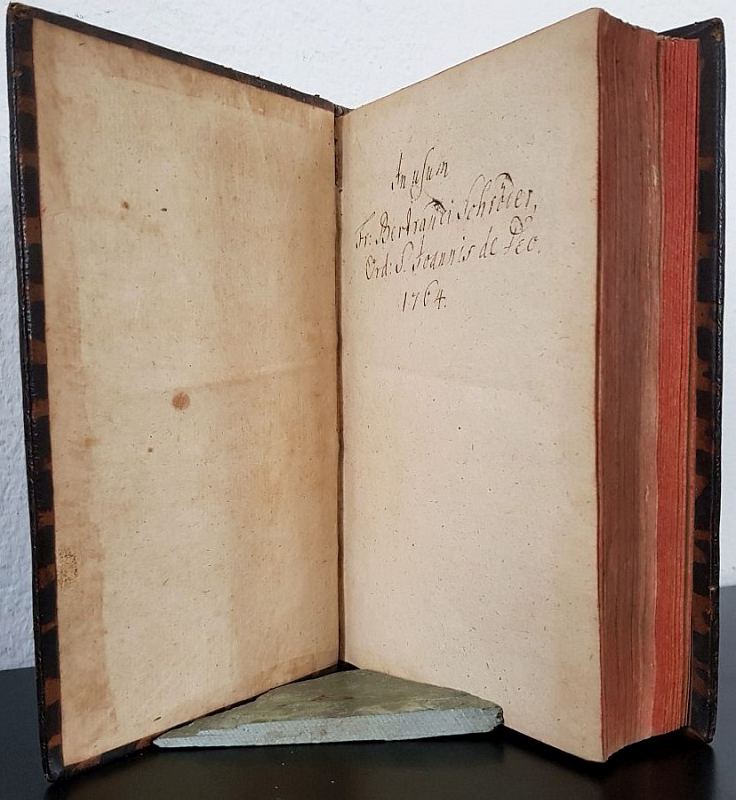 In usum
Fr: Bertrandi Schröder,
Ord: S. Joannis de Deo.
1764.